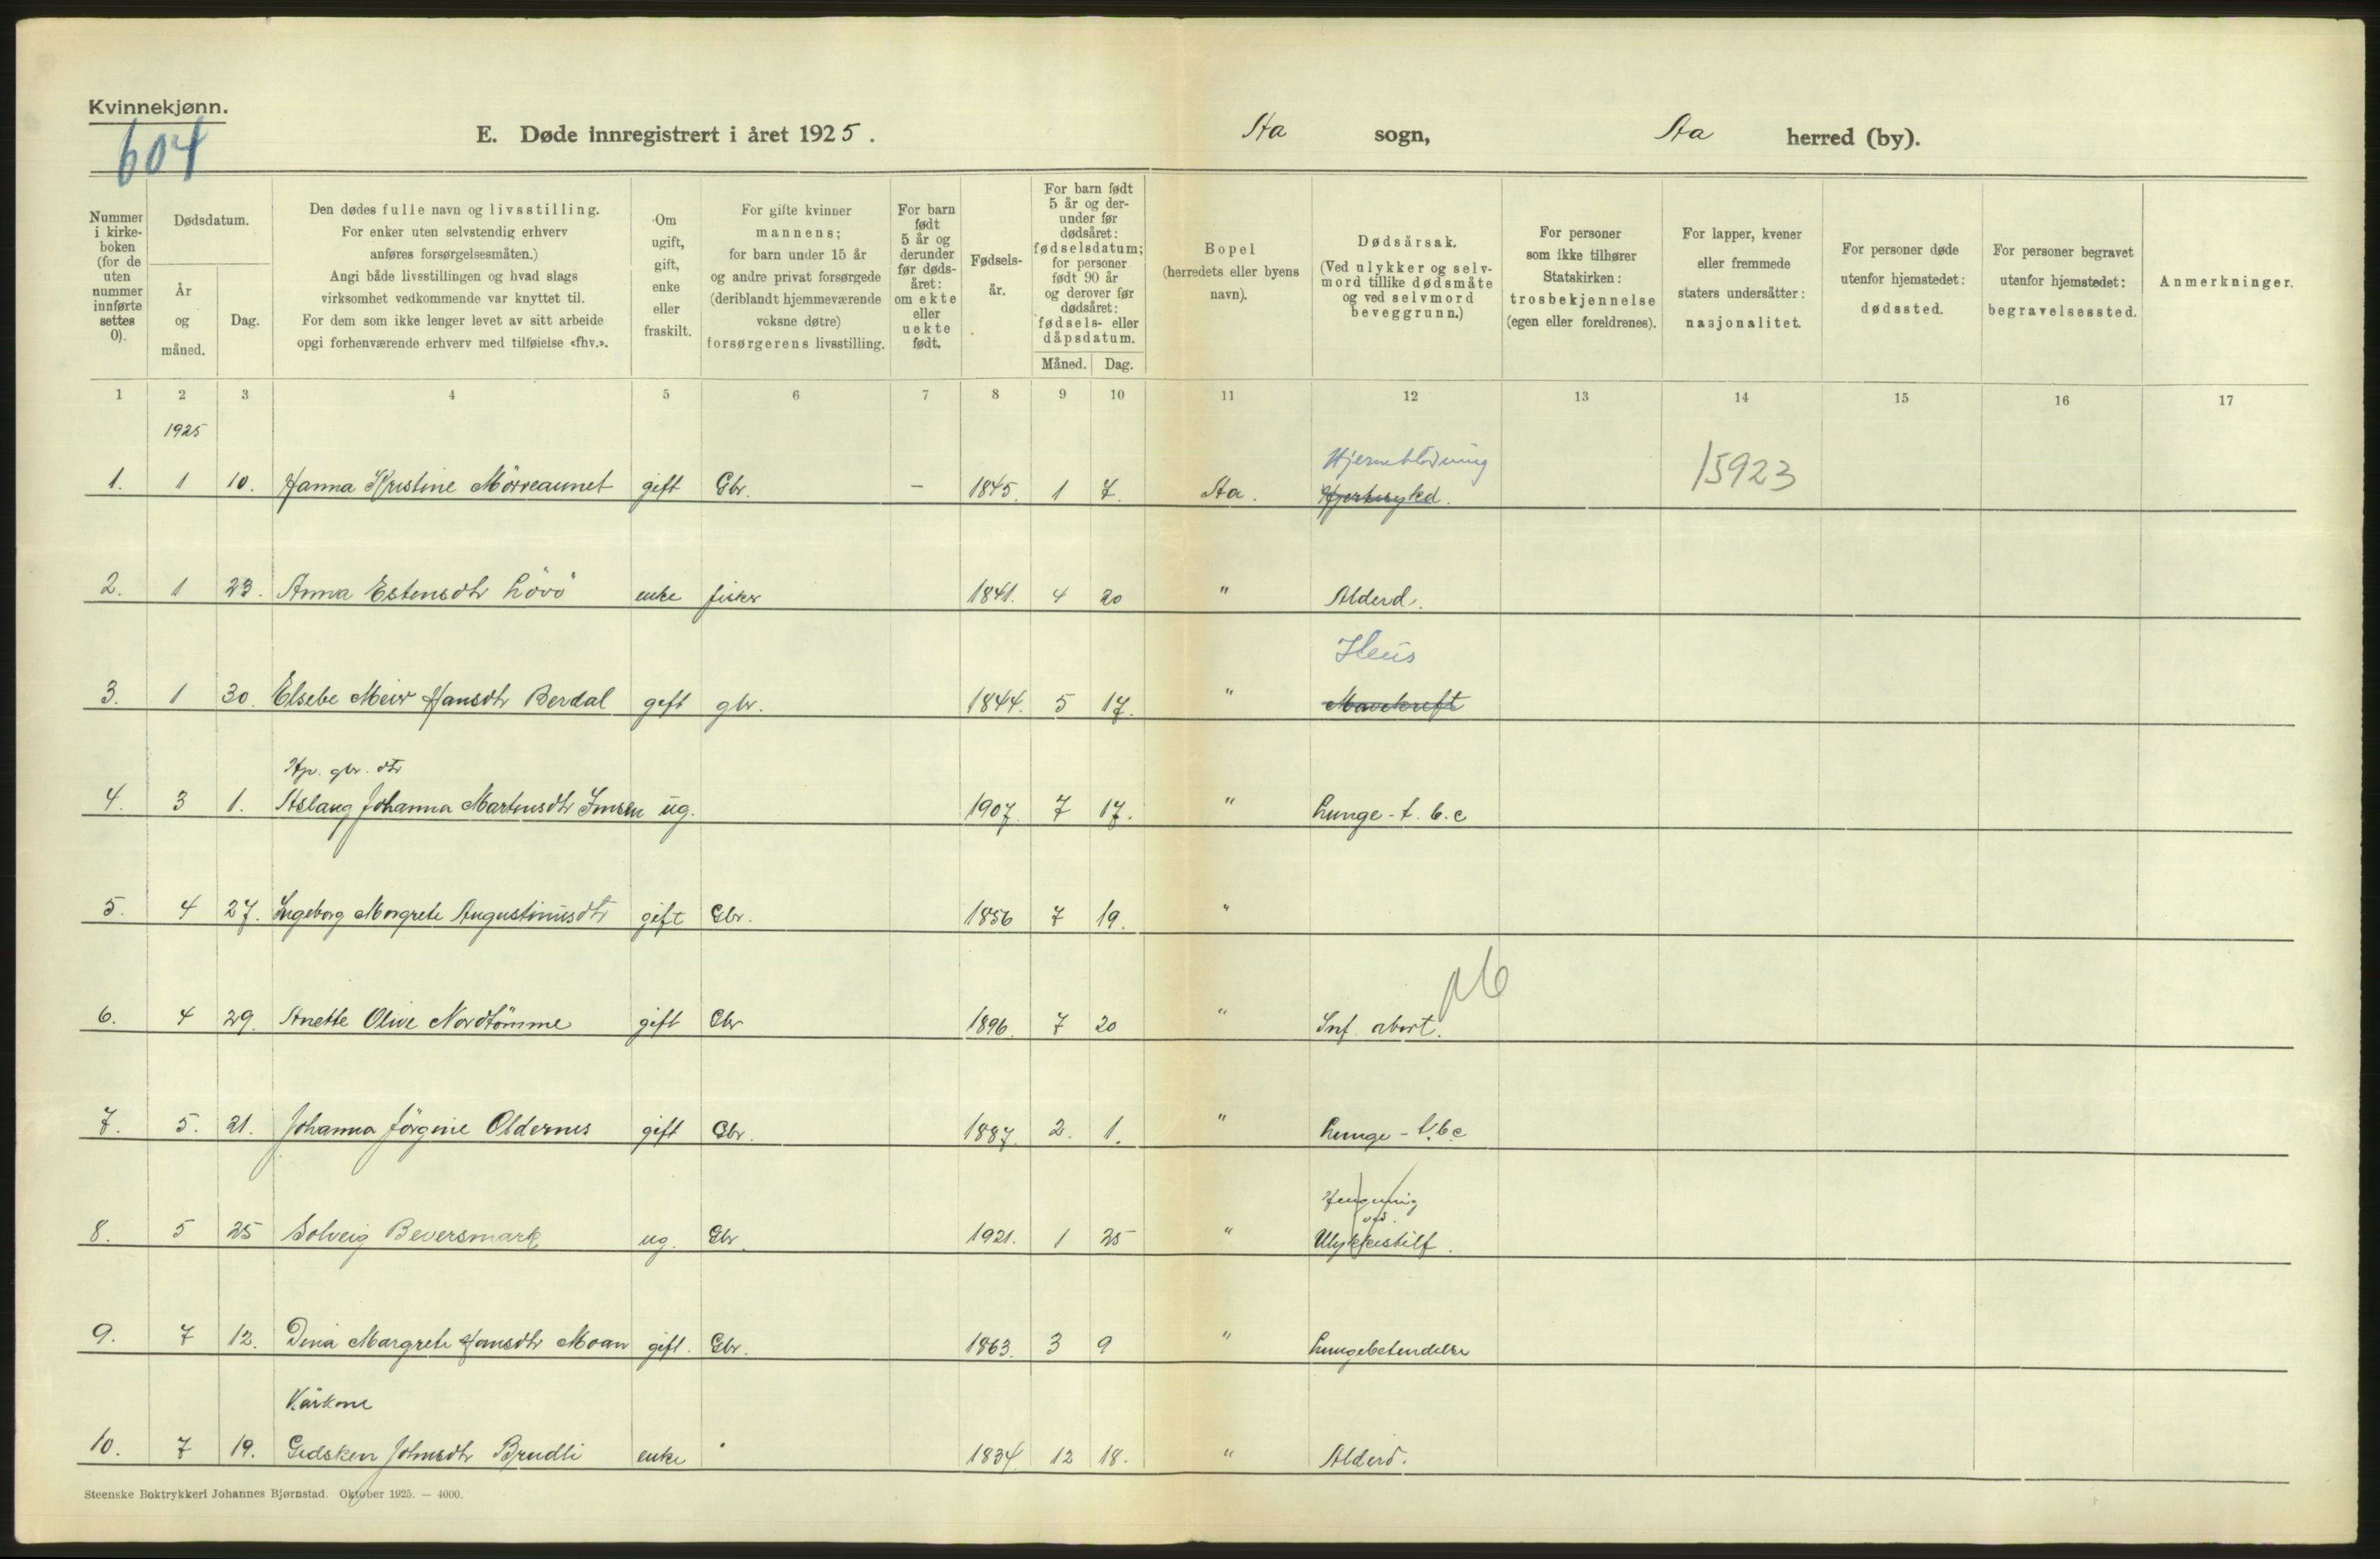 Kvinnekjønn.
604
E. Døde innregistrert i året 1925.
Aa sogn, Aa herred (by).
Nummer i kirke-boken (for de uten nummer innførte settes 0).
Dødsdatum.
År og måned.
Dag.
Den dødes fulle navn og livsstilling.
For enker uten selvstendig erhverv
anføres forsørgelsesmåten.)
Angi både livsstillingen og hvad slags
virksomhet vedkommende var knyttet til.
For dem som ikke lenger levet av sitt arbeide
opgi forhenværende erhverv med tilføielse «fhv.».
Om ugift, gift, enke eller fraskilt.
For gifte kvinner
mannens;
for barn under 15 år
og andre privat forsørgede
(deriblandt hjemmeværende
voksne døtre)
forsørgerens livsstilling.
For barn født 5 år og derunder før døds-året: om ekte eller uekte født.
Fødsels-år.
For barn født 5 år og der-under før dødsåret: fødselsdatum; for personer født 90 år og derover før dødsåret: fødsels- eller dåpsdatum.
Måned. Dag.
Bopel
(herredets eller byens
navn).
Dødsårsak.
(Ved ulykker og selv-
mord tillike dødsmåte
og ved selvmord
beveggrunn.)
For personer
som ikke tilhører
Statskirken:
trosbekjennelse
(egen eller foreldrenes).
For lapper, kvener
eller fremmede
staters undersåtter:
nasjonalitet.
For personer døde
utenfor hjemstedet:
dødssted.
For personer begravet
utenfor hjemstedet:
begravelsessted.
Anmerkninger.
1 2 3 4 5 6 7 8 9 10 11 12 13 14 15 16 17
1925
Hjerneblødning 15923
1. 1 10. Hanna Kristine Mörreaunet gift Gbr. – 1845. 1 7. Aa. Hjertesykd.
2. 1 23. Anna Estensdtr Lövö enke fisker 1841. 4 20 " Alderd.
Ileus
3. 1 30. Elsebe Meier Hansdtr Berdal gift gbr. 1844. 5 17. " Mavekreft
Hp. gbr. dtr
4. 3 1. Aslaug Johanna Martinsdtr Imsen ug. 1907. 7 17. " Lunge-t.b.c
5. 4 27. Ingeborg Margrete Augustinusdtr gift Gbr. 1856 7 19. "
ab
6. 4 29. Anette Olive Nordtömme gift Gbr 1896. 7 20 " Inf. abort.
7. 5. 21. Johanna Jörgine Oldernes gift Gbr. 1887. 2. 1. " Lunge-t.b.c
ved
8. 5 25 Solveig Beversmark ug. Gbr. 1921. 1 25 " Ulykkestilf.
9. 7 12. Dina Margrete Hansdtr Moan gift. Gbr. 1863. 3 9 " Lungebetendelse
Kårkone
10. 7 19. Gidsken Johnsdtr Brudli enke " 1834. 12 18. " Alderd.
Steenske Boktrykkeri Johannes Bjørnstad. Oktober 1925. — 4000.